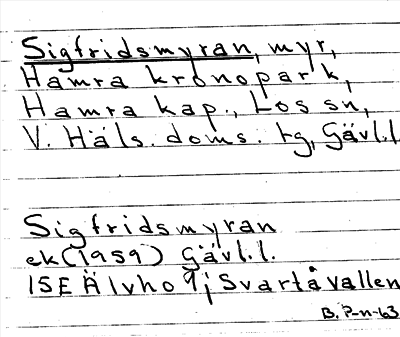 Sigfridsmyran, myr,
Hamra kronopark,
Hamra kap., Los sn,
V. Häls. doms. tg, Gävl.l
Sigfridsmyran
ek (1959) Gävl.l.
15E Älvho 9j Svartåvallen
B. P-n-63